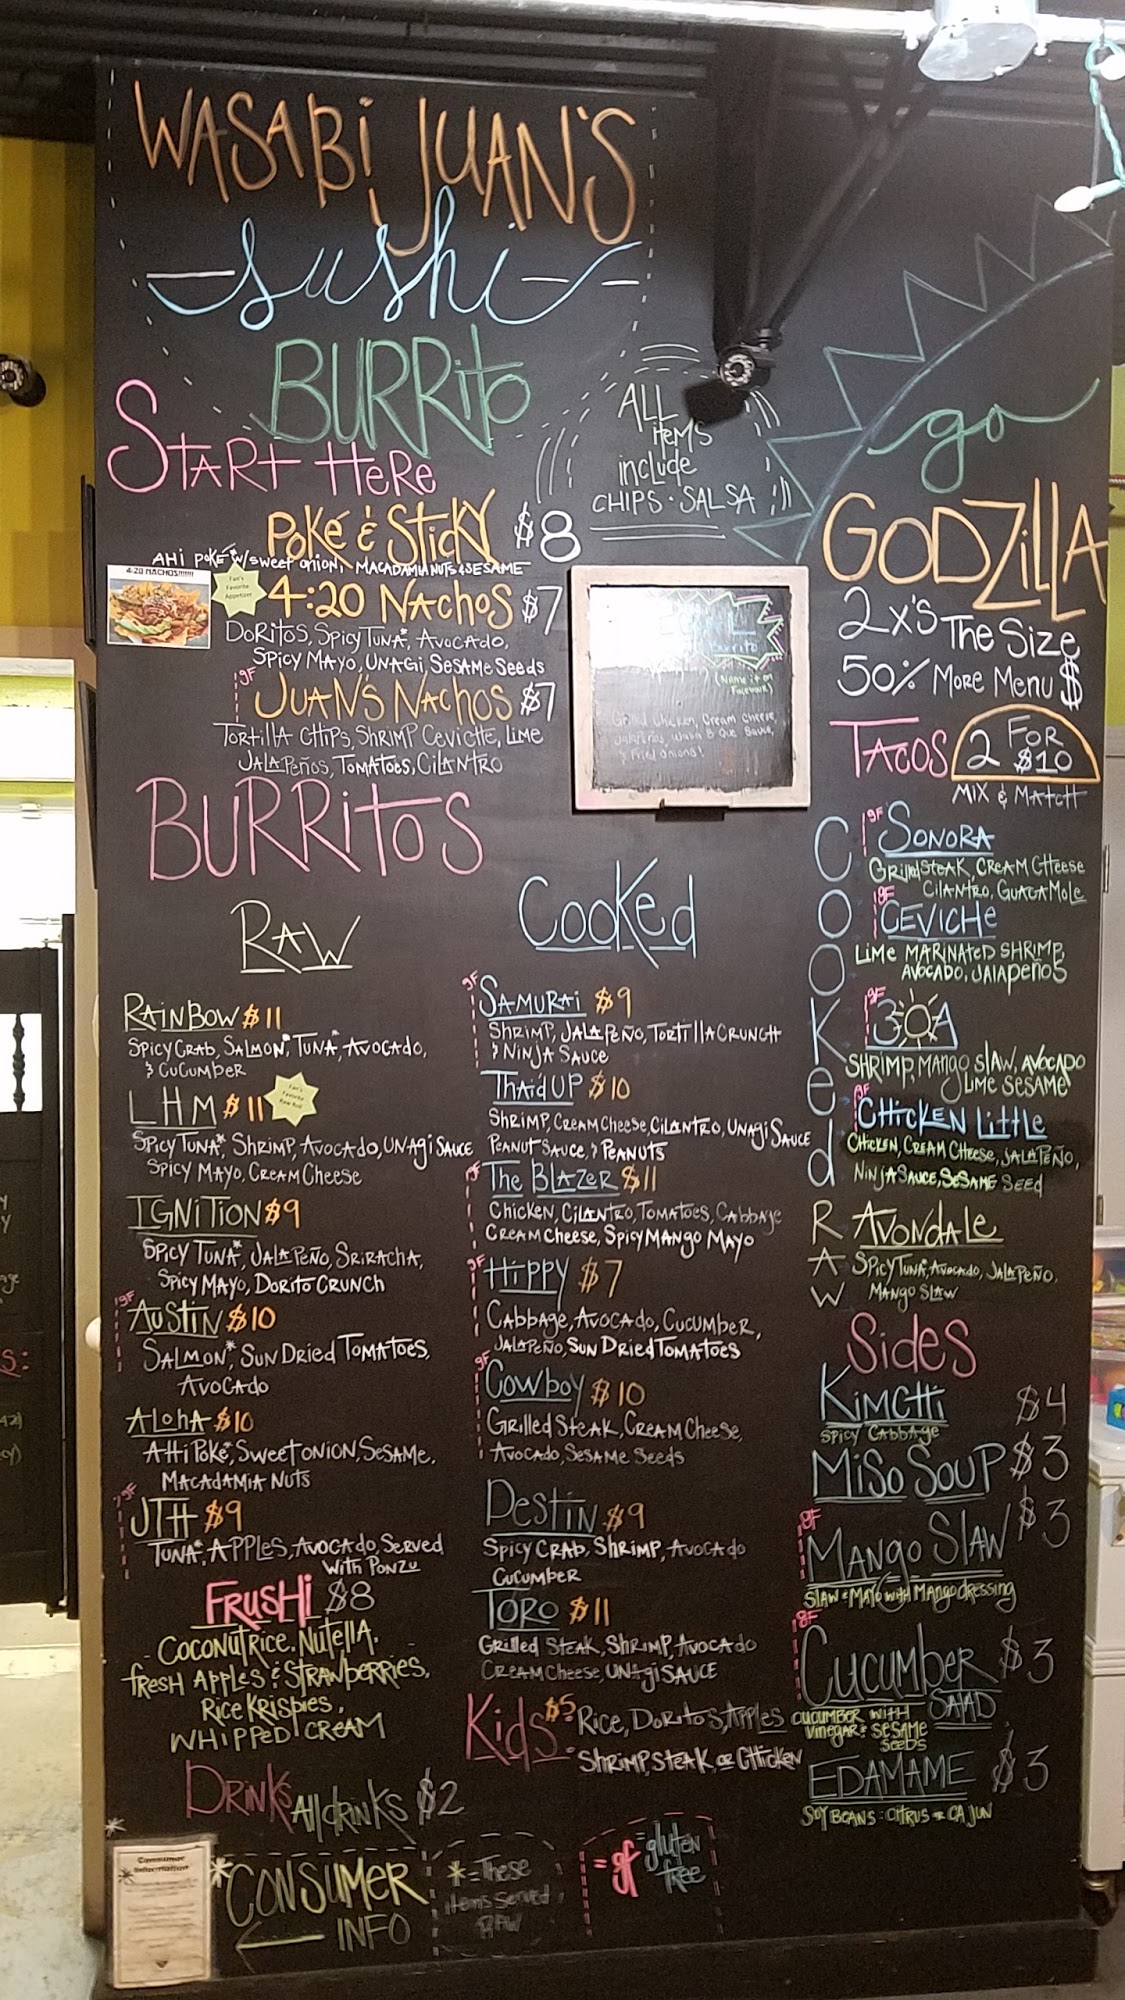 WASABI JUAN'S
sushi
BURRITO
START HERE
POKÉ & STICKY $8
AHI POKÉ* W/ SWEET ONION, MACADAMIA NUTS & SESAME
4:20 NACHOS!!!!!!!
Fan's
Favorite
Appetizer
4:20 NACHOS $7
DORITOS, SPICY TUNA*, AVOCADO,
SPICY MAYO, UNAGI, SESAME SEEDS
gf JUAN'S NACHOS $7
TORTILLA CHIPS, SHRIMP CEVICHE, LIME
JALAPEÑOS, TOMATOES, CILANTRO
ALL
ITEMS
include
CHIPS · SALSA
Burrito
(Name it on
Facebook)
Grilled Chicken, Cream Cheese,
Jalapeños, Wasa B Que Sauce,
& Fried Onions!
BURRITOS
RAW
RAINBOW $11
SPICY CRAB, SALMON*, TUNA*, AVOCADO,
& CUCUMBER
LHM $11
Fan's
Favorite
Raw Roll
SPICY TUNA*, SHRIMP, AVOCADO, UNAGI SAUCE
SPICY MAYO, CREAM CHEESE
IGNITION $9
SPICY TUNA*, JALAPEÑO, SRIRACHA,
SPICY MAYO, DORITO CRUNCH
gf AUSTIN $10
SALMON*, SUN DRIED TOMATOES,
AVOCADO
ALOHA $10
AHI POKÉ*, SWEET ONION, SESAME,
MACADAMIA NUTS
gf JTH $9
TUNA*, APPLES, AVOCADO, SERVED
WITH PONZU
FRUSHI $8
COCONUT RICE, NUTELLA,
FRESH APPLES & STRAWBERRIES,
RICE KRISPIES,
WHIPPED CREAM
DRINKS All DRINKS $2
Cooked
gf SAMURAI $9
SHRIMP, JALAPEÑO, TORTILLA CRUNCH
& NINJA SAUCE
THAID UP $10
SHRIMP, CREAM CHEESE, CILANTRO, UNAGI SAUCE
PEANUT SAUCE, & PEANUTS
gf THE BLAZER $11
CHICKEN, CILANTRO, TOMATOES, CABBAGE
CREAM CHEESE, SPICY MANGO MAYO
gf HIPPY $7
CABBAGE, AVOCADO, CUCUMBER,
JALAPEÑO, SUN DRIED TOMATOES
gf COWBOY $10
GRILLED STEAK, CREAM CHEESE,
AVOCADO, SESAME SEEDS
DESTIN $9
SPICY CRAB, SHRIMP, AVOCADO
CUCUMBER
TORO $11
GRILLED STEAK, SHRIMP, AVOCADO
CREAM CHEESE UNAGI SAUCE
Kids $5: RICE, DORITOS, APPLES
SHRIMP, STEAK, OR CHICKEN
go
GODZILLA
2 X'S THE SIZE
50% MORE MENU $
TACOS 2 FOR $10
MIX & MATCH
COOKed
gf SONORA
GRILLED STEAK, CREAM CHEESE
CILANTRO, GUACAMOLE
gf CEVICHE
LIME MARINATED SHRIMP,
AVOCADO, JALAPEÑOS
gf 30A
SHRIMP, MANGO SLAW, AVOCADO
LIME SESAME
gf CHICKEN LITTLE
CHICKEN, CREAM CHEESE, JALAPEÑO,
NINJA SAUCE, SESAME SEED
RAW
AVONDALE
SPICY TUNA, AVOCADO, JALAPEÑO,
MANGO SLAW
Sides
KIMCHI $4
SPICY CABBAGE
MISO SOUP $3
gf MANGO SLAW $3
SLAW & MAYO WITH MANGO DRESSING
gf CUCUMBER SALAD $3
CUCUMBER WITH
VINEGAR & SESAME
SEEDS
EDAMAME $3
SOY BEANS : CITRUS & CAJUN
Consumer
Information
*CONSUMER
INFO
* = These
items served
RAW
= gf = gluten
free